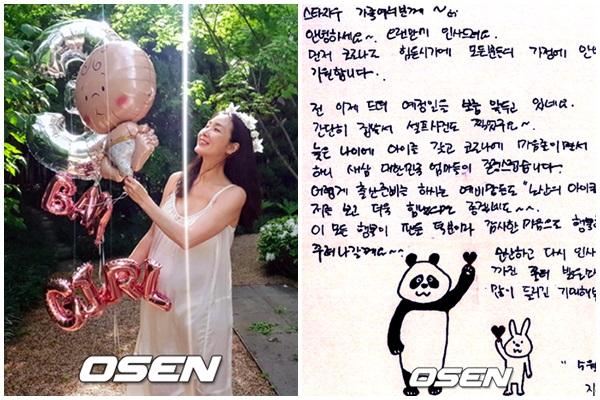 BABY
GIRL
OSEN
스타지우 가족여러분께 ~
안녕하세요~. 오랜만에 인사드려요.
먼저 코로나로 힘든시기에 모든분들의 가정에 안녕
기원합니다.
전 이제 드뎌 예정일을 보름 앞두고 있네요.
간단히 집에서 셀프사진도 찍고구요~
늦은 나이에 아이를 갖고 코로나에 마음졸이면서
하니 새삼 대한민국 엄마들이 존경스럽습니다.
어렵게 출산준비를 하시는 예비맘들도 "노산의 아이콘
저를 보고 더욱 힘내시면 좋겠네요~~.
이 모든 행복이 팬들 덕분이라 감사한 마음으로
순산하고 다시 인사
많이 드리길
OSEN